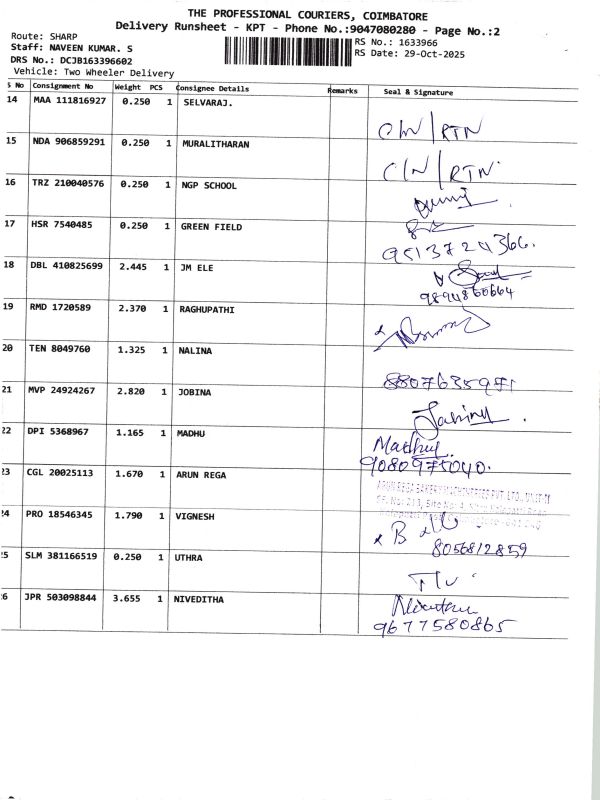 THE PROFESSIONAL COURIERS, COIMBATORE
Delivery Runsheet - KPT - Phone No.:9047080280 - Page No.:2
Route: SHARP
RS No.: 1633966
Staff: NAVEEN KUMAR. S
RS Date: 29-Oct-2025
DRS No.: DCJB163396602
Vehicle: Two Wheeler Delivery
S No Consignment No Weight PCS Consignee Details Remarks Seal & Signature
14 MAA 111816927 0.250 1 SELVARAJ.
C/N/RTN
15 NDA 906859291 0.250 1 MURALITHARAN
C/N/RTN.
16 TRZ 210040576 0.250 1 NGP SCHOOL
17 HSR 7540485 0.250 1 GREEN FIELD
9513724366.
18 DBL 410825699 2.445 1 JM ELE
9894860664
19 RMD 1720589 2.370 1 RAGHUPATHI
20 TEN 8049760 1.325 1 NALINA
8807635971
21 MVP 24924267 2.820 1 JOBINA
22 DPI 5368967 1.165 1 MADHU
Madhu.
9080975040.
23 CGL 20025113 1.670 1 ARUN REGA
24 PRO 18546345 1.790 1 VIGNESH
8056812859
25 SLM 381166519 0.250 1 UTHRA
26 JPR 503098844 3.655 1 NIVEDITHA
9677580865